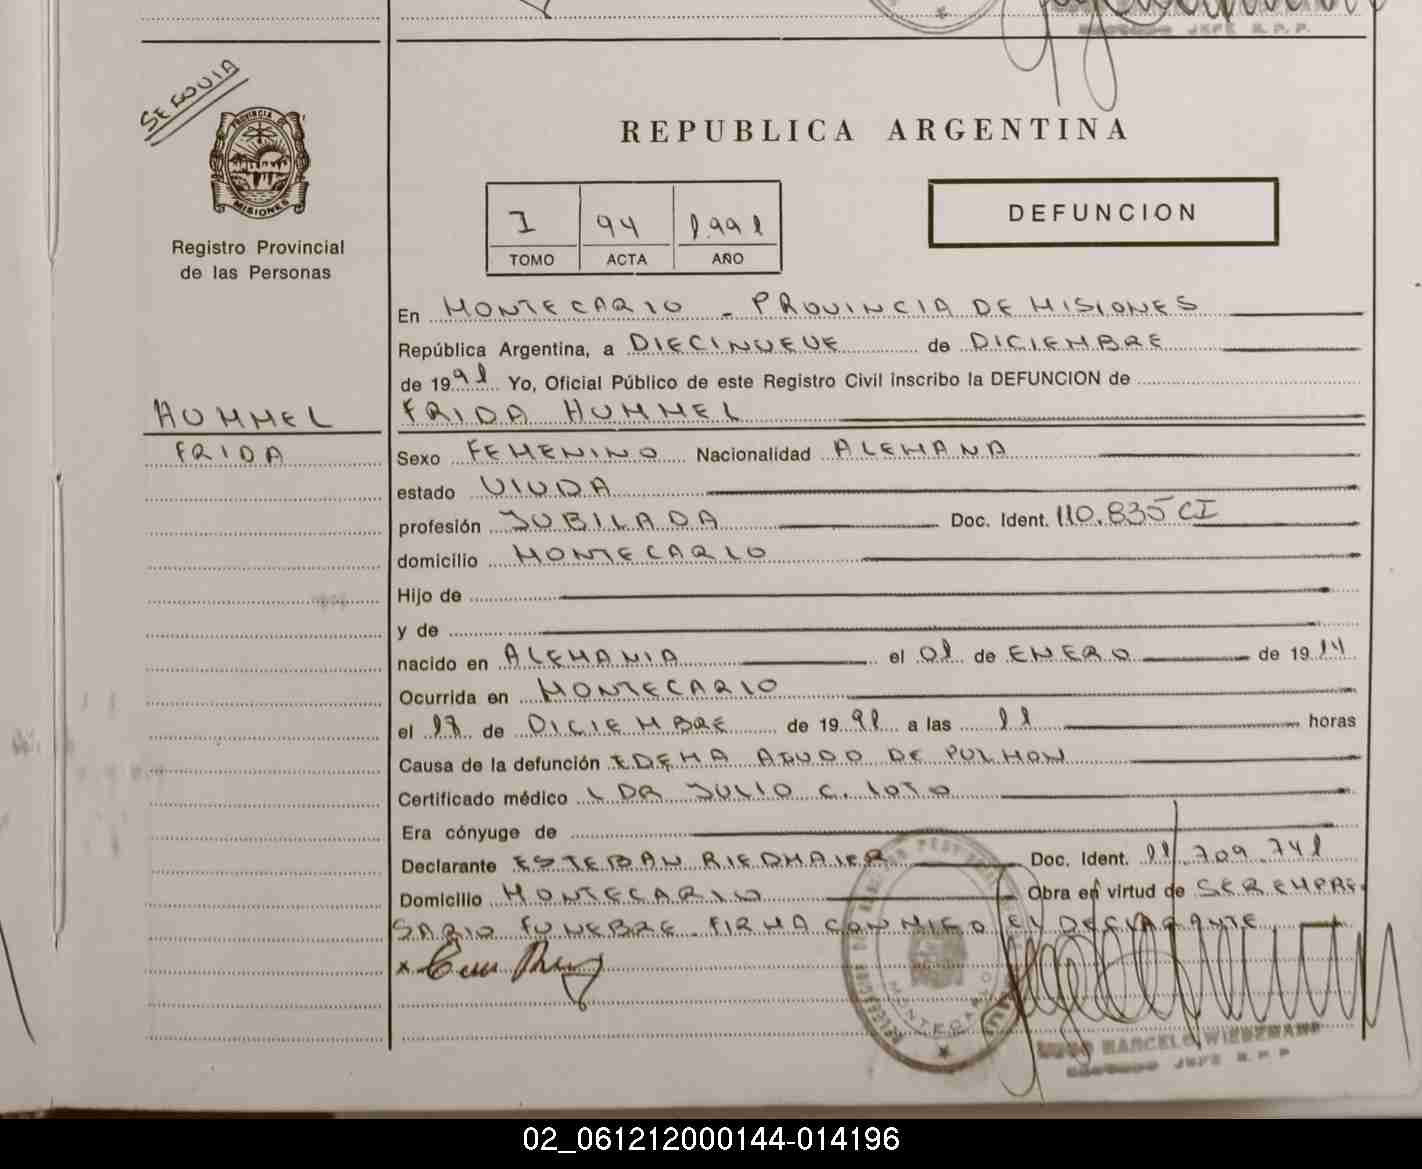 JEFE R.P.P.
SEGOVIA
PROVINCIA DE
MISIONES
REPUBLICA ARGENTINA
I 94 1.991
TOMO ACTA AÑO
DEFUNCION
Registro Provincial
de las Personas
En MONTECARLO - PROVINCIA DE MISIONES
República Argentina, a DIECINUEVE de DICIEMBRE
de 1991 Yo, Oficial Público de este Registro Civil inscribo la DEFUNCION de
HUMMEL FRIDA HUMMEL
FRIDA Sexo FEMENINO Nacionalidad ALEMANA
estado VIUDA
profesión JUBILADA Doc. Ident. 110.835 CI
domicilio MONTECARLO
Hijo de
y de
nacido en ALEMANIA el 01 de ENERO de 1914
Ocurrida en MONTECARLO
el de DICIEMBRE de 1991 a las 11 horas
Causa de la defunción EDEMA AGUDO DE PULMON
Certificado médico DR JULIO C. LOTO
Era cónyuge de
Declarante ESTEBAN RIEDMAIER Doc. Ident. 11.709.741
Domicilio MONTECARLO Obra en virtud de SER EMPRE-
SARIO FUNEBRE - FIRMA CONMIGO EL DECLARANTE
MONTECARLO
MARCELO WIEDEMANN
JEFE R.P.P.
02_061212000144-014196